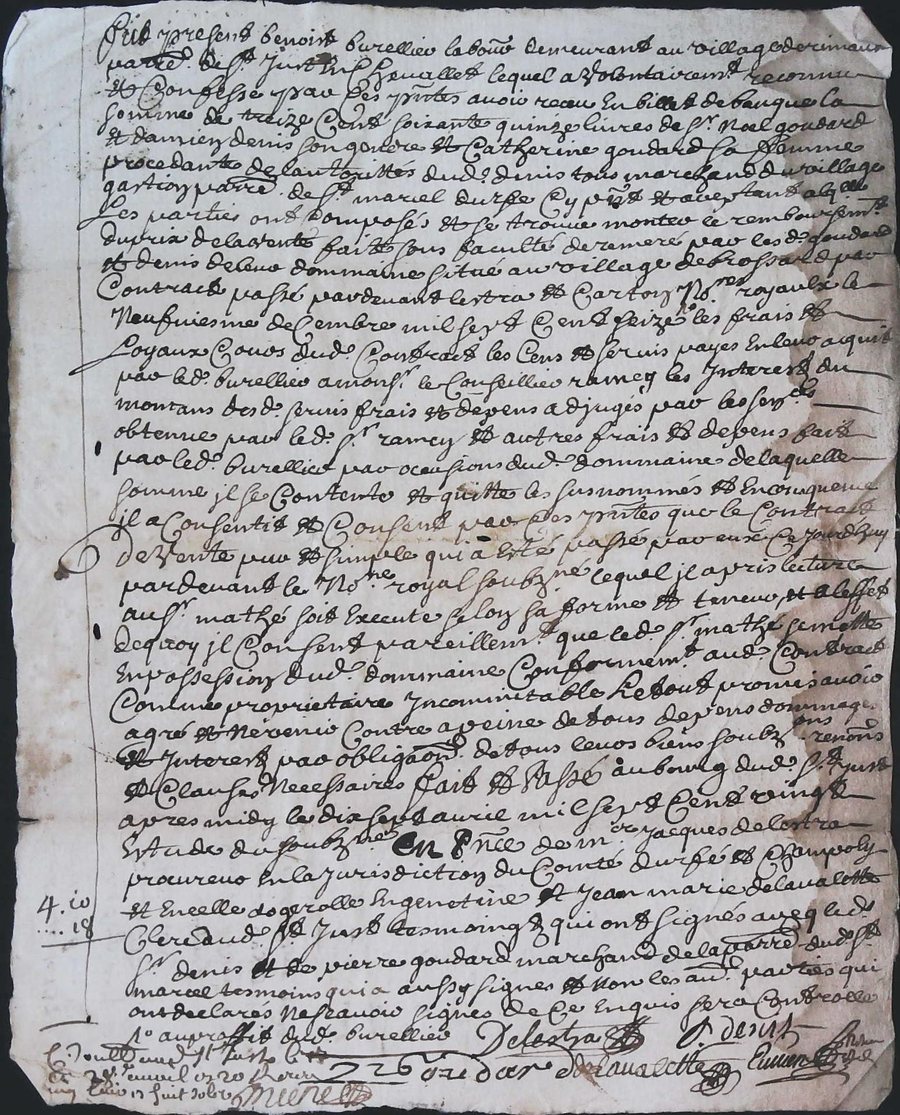 Fut present benoist burellier laboure demeurant au village de rimaux
parre. de St. Just En Chevallet lequel a volontairemt. reconnu
Et Confessé par Ces pntes avoir receu En billet de banque la
somme de treize Cent soixante quinze livres de Sr. Noel goudard
Et damien denis son gendre Et Catherine goudard sa femme
procedante de lautorittés dud. denis tous marchand du village
parre. de St. marcel durfe Cy pnt Et aceptant
Les parties ont Composés Et se trouve monter le remboursemt.
du prix de la vente fait sous faculté de remeré par les d. goudard
Et denis de leur dommaine situé au village de brossard par
Contract passé pardevant lestra Et Carton Nores. royaulx le
Neufviesme decembre mil sept Cent seize les frais Et
Loyaux Couts dud. Contract les Cens Et servis payes En leur aquit
par led. burellier a monsr. le Conseillier ramey les Interest du
montans desd. servis frais Et depens adjugés par les sences
obtenue par led. Sr. ramey Et autres frais Et depens fait
par led. burellier par occasions dud. dommaine de laquelle
somme jl se Contente Et quitte les susnommés Et
jl a Consentit Et Consent par Ces pntes que le Contract
De Vente pur Et simple qui a Esté passé par eux Ce jourdhuy
pardevant le Nore. royal soubzné lequel jl a pris lecture
au Sr. mathé soit Execute selon sa forme Et teneur, Et a lesfet
dequoy jl Consent pareillemt. que led. Sr. mathé se mette
En possession dud. dommaine Conformemt. aud. Contract
Comme propriétaire Incommutable Le tout promis avoir
agré Et Ne venir Contre a peine de tous depens dommages
Et Interest par obligaon. de tous leurs biens soubz ons renons
Et Clauses Necessaires fait Et Passé au bourg dud. St. Just
apres midy le dix sept avril mil sept Cent vingt
Estude du soubznes En Pnce de mre Jacques delestra
procureur En la jurisdiction du Comté durfé Et Champoly
Et En celle dogerolle Et jean marie delavalette
Clerc aud. St. Just tesmoingz qui ont signés avecq led.
Sr. denis Et de pierre goudard marchand de la parre. dud. St.
marcel tesmoins qui a aussy signes Et Non les au. parties qui
ont declarés Ne scavoir signes de Ce Enquis sera Controllé
au proffit dud. burellier Delestra D. denis
goudar Delavalette
4. 10
.... 18
Controllé aud. St Just le
avril 1720